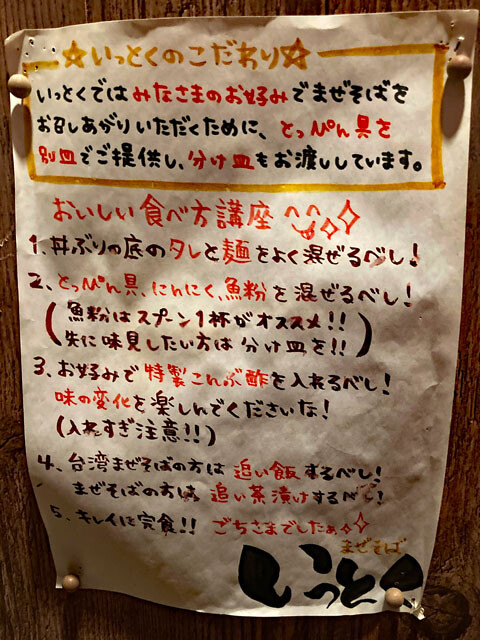 ☆いっとくのこだわり☆
いっとくではみなさまのお好みでまぜそばを
お召しあがりいただくために、とっぴん具を
別皿でご提供し、分け皿もお渡ししています。
おいしい食べ方講座
1、丼ぶりの底のタレと麺をよく混ぜるべし!
2、とっぴん具、にんにく、魚粉を混ぜるべし!
(魚粉はスプーン1杯がオススメ!!
先に味見したい方は分け皿を!!)
3、お好みで特製こんぶ酢を入れるべし!
味の変化を楽しんでくださいな!
(入れすぎ注意!!)
4、台湾まぜそばの方は追い飯するべし!
まぜそばの方は、追い茶漬けするべし!
5、キレイに完食!!ごちさまでしたぁ
まぜそば
いっとく